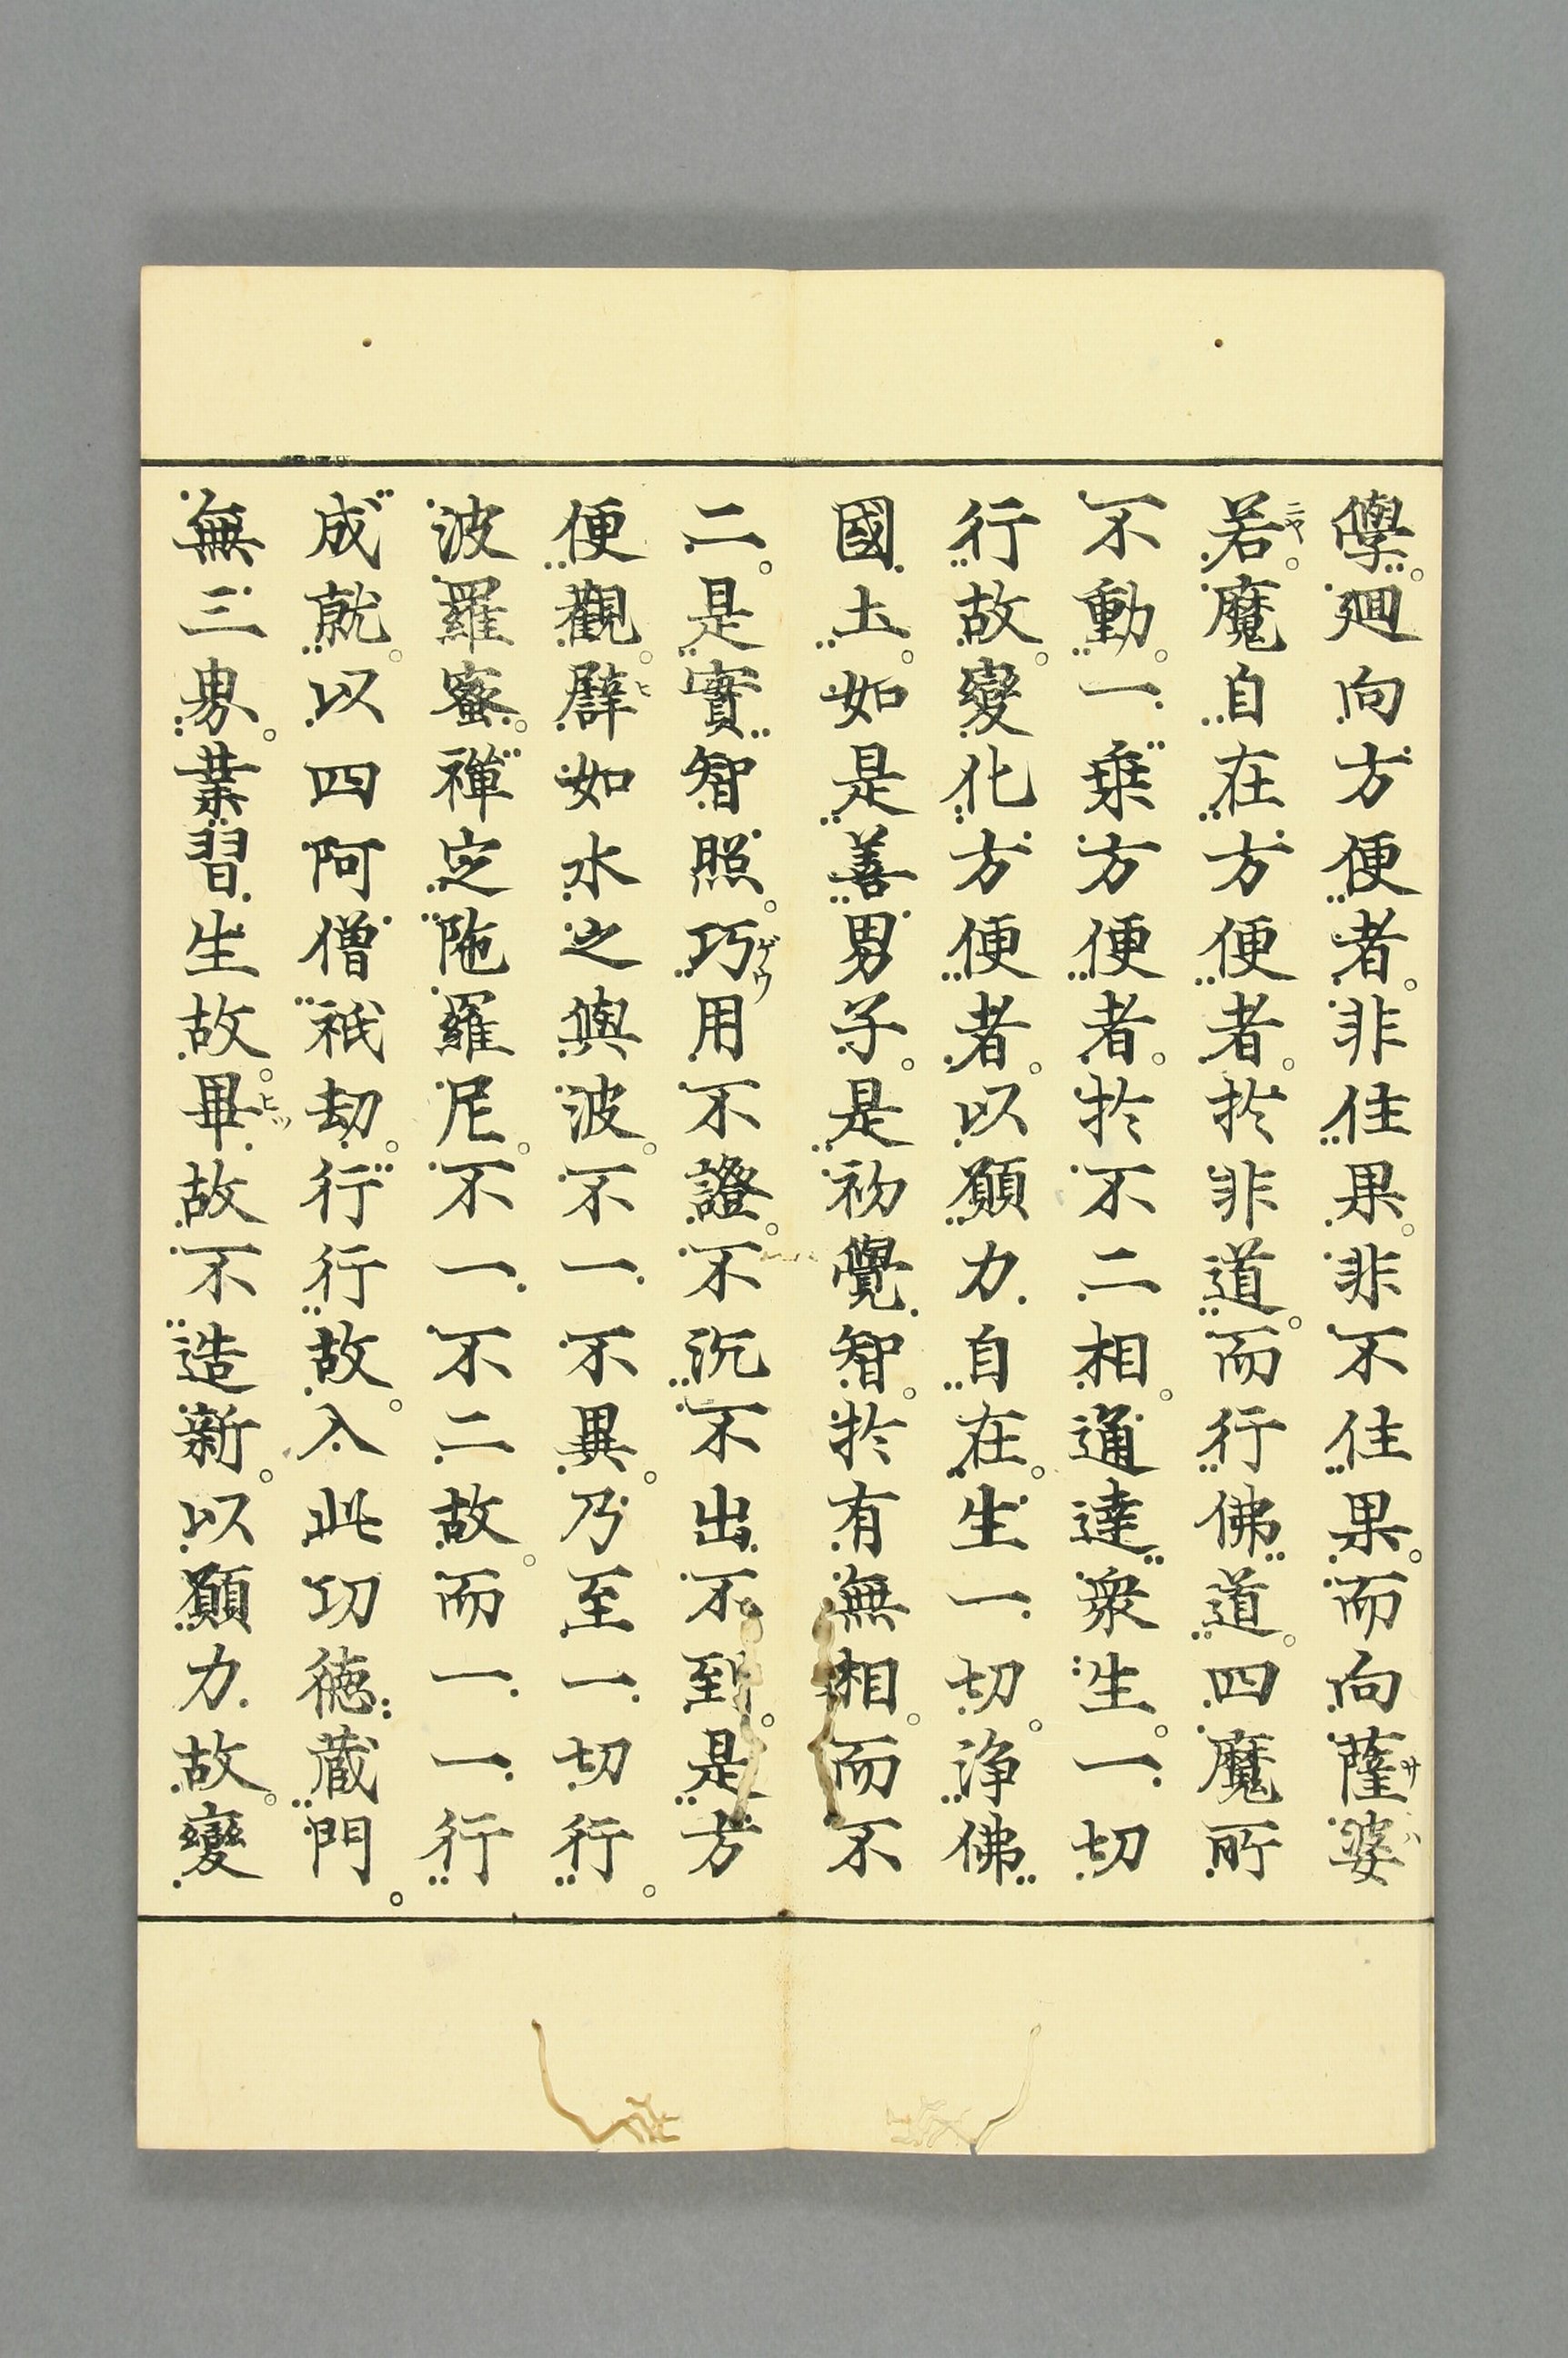 學廻向方便者非住果非不住果而向薩婆
若魔自在方便者於非道而行佛道四魔所
不動一乗方便者於不二相通達衆生一切
行故變化方便者以願力自在生一切淨佛
國土如是善男子是初覺智於有無相而不
二是實智照巧用不證不沉不出不到是方
便觀譬如水之與波不一不異乃至一切行
波羅蜜禅定陁羅尼不一不二故而一一行
成就以四阿僧祇劫行行故入此功徳蔵門
無三界業習生故畢故不造新以願力故變
ニヤ
サハ
ゲウ
ヒ
ヒツ